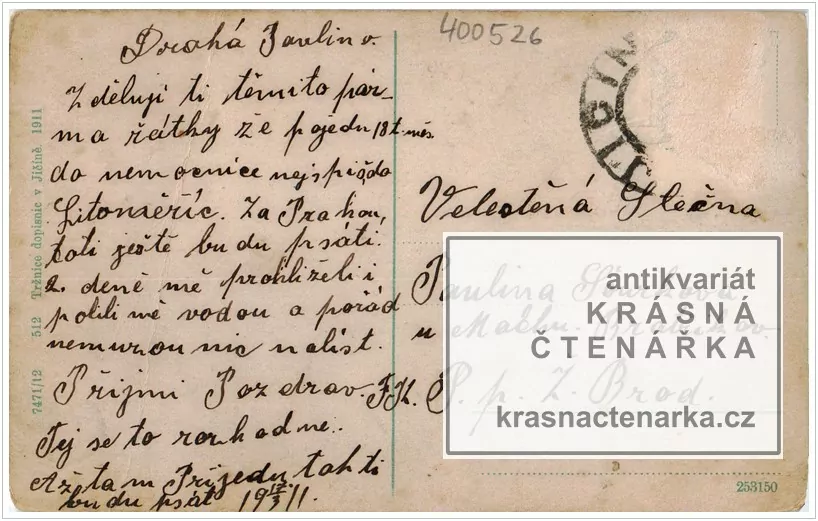 400526
Drahá Paulino.
Zděluji ti těmito pár-
ma řátky že pojedu 18 t. měs.
do nemocnice nejspíš do
Litoměřic. Za Prahou,
toti ještě budu psáti.
2. deně mě prohlíželi i
polili mě vodou a pořád
nemuzou nic nalíst.
Přijmi Pozdrav. FK.
Tej se to rozhodne.
Až tam Přijedu tak ti
budu psát 19 17/3 11.
7471/12 512 Tržnice dopisnic v Jičíně. 1911
JIČÍN
Velectěná Slečna
Paulina
u
P. p. Z. Brod.
antikvariát
KRÁSNÁ
ČTENÁŘKA
krasnactenarka.cz
D
253150